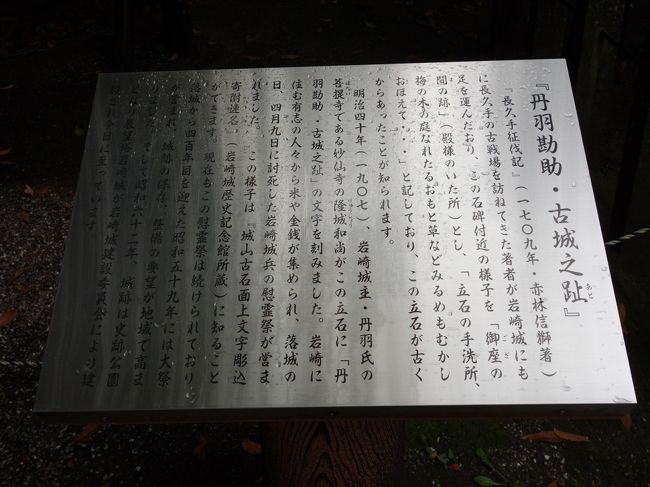 『丹羽勘助・古城之趾』
あと
「長久手征伐記」（一七〇九年・赤林信獅著）
に長久手の古戦場を訪ねてきた著者が岩崎城にも
足を運んだおり、この石碑付近の様子を「御座の
間の跡」（殿様のいた所）とし、「立石の手洗所、
梅の木の庭なれたるおもと草などみるめもむかし
おほえて・・・」と記しており、この立石が古く
からあったことが知られます。
明治四十年（一九〇七）、岩崎城主・丹羽氏の
菩提寺である妙仙寺の隆城和尚がこの立石に「丹
羽勘助・古城之趾」の文字を刻みました。岩崎に
住む有志の人々から米や金銭が集められ、落城の
日、四月九日に討死した岩崎城兵の慰霊祭が営ま
れました。この様子は『城山古石面上文字彫込
寄附連名』（岩崎城歴史記念館所蔵）に知ること
ができます。現在もこの慰霊祭は続けられており
落城から四百年目を迎えた昭和五十九年には大祭
が営まれ、城跡の保存、整備の要望が地域で高ま
りました。そして昭和六十二年、城跡は史跡公園
となり展望塔岩崎城が岩崎城建設委員会により建
これ今日に至っています。